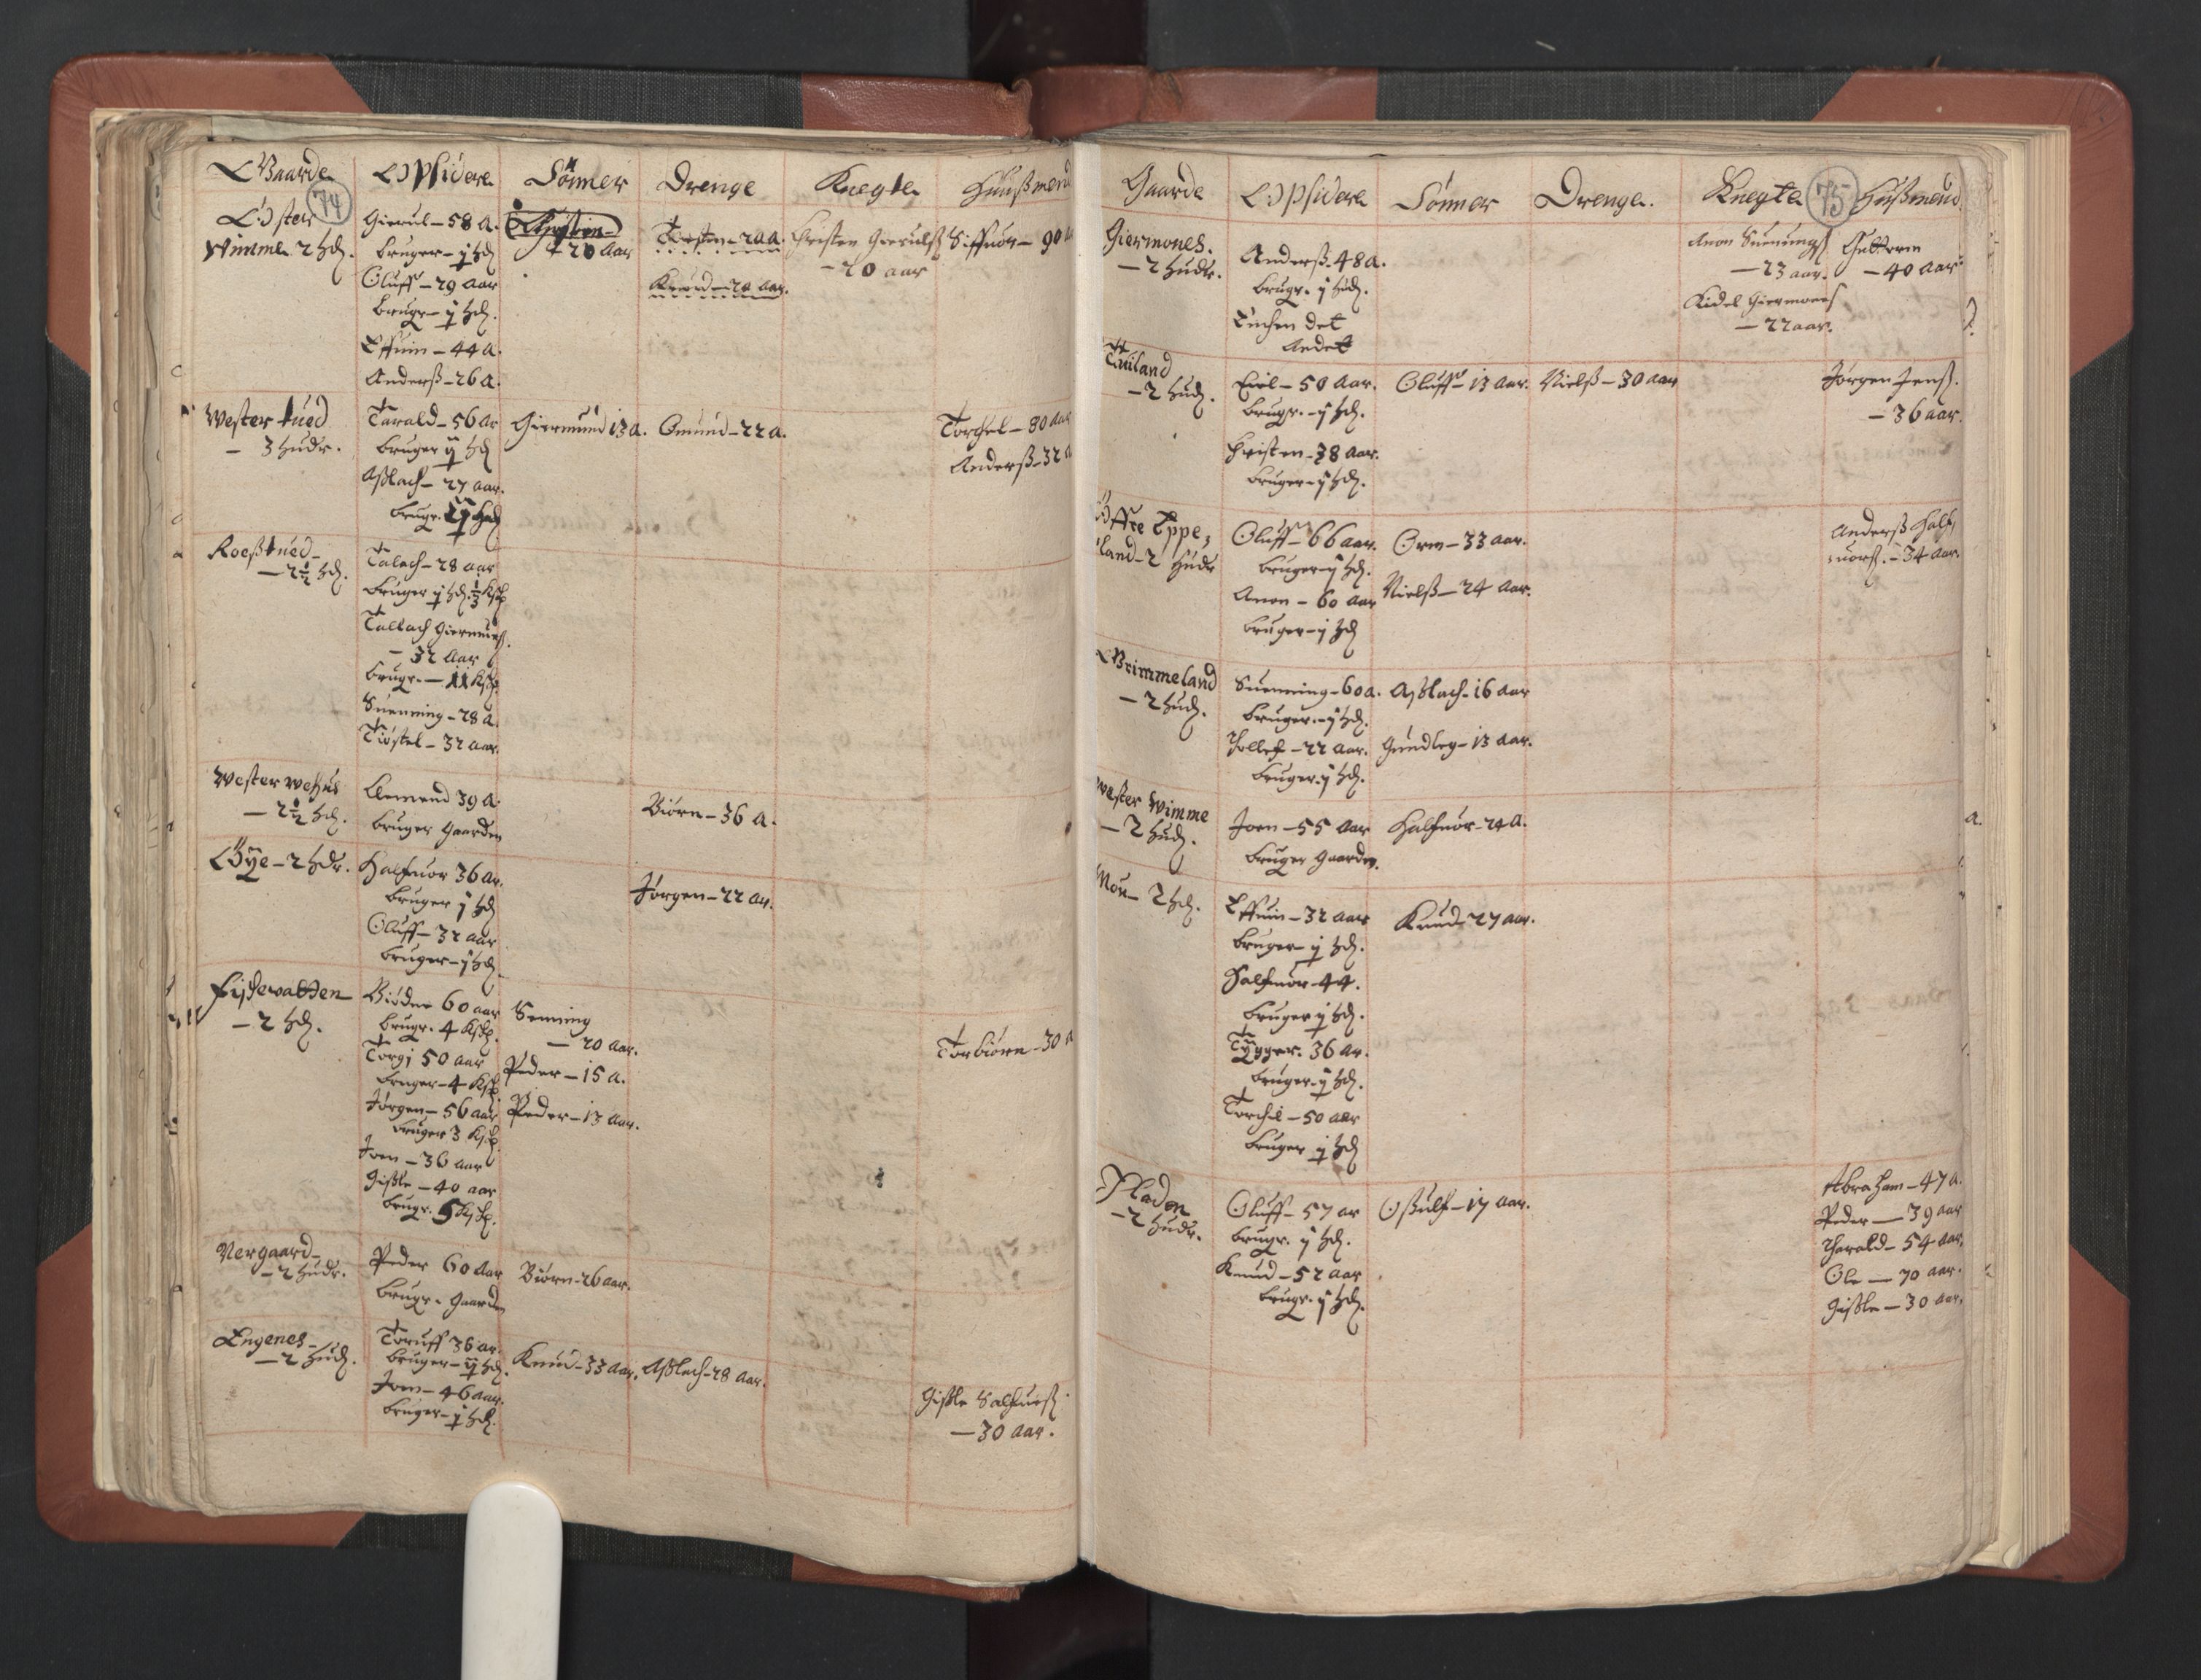 Gaarde
Opsidere
Sønner
Drenge
Knegte
Huußmend
74
Øster
Wimme 2 hd.
Gierul – 58 A.
bruger – j hd
Oluff – 29 Aar
brugr – j hd.
Effuin – 44 A.
Anderß – 26 A.
Christen
20 Aar
Torsten – 20 A.
Knud – 20 Aar.
Christen Gierulß
– 20 aar
Siffuor – 90
Wester tued
– 3 hudr.
Tarald – 56 Ar
bruger ij hd
Aßlach – 27 aar.
brugr. hd
Giermund 13 A.
Omund – 22 A.
Torchel – 80 Aar
Anderß – 32 A
Roeßtued –
– 2½ hd.
Talach – 28 aar
Bruger j hd.
Tallach
– 32 Aar
brugr. – 11 Ksk
Suenning – 28 A.
Tiøstel – 32 aar
Wester Wehus
– 2½ hd.
Clemend 39 A.
bruger Gaarden
Biørn – 36 A.
Øye – 2 hdr.
Halfuor 36 Ar.
bruger j hd
Oluff – 32 aar
bruger – j hd.
Jørgen – 22 Ar.
– 2 hd.
60 aar
brugr. 4 Ksk.
Torgj 50 aar
bruger – 4 Ksk.
Jørgen – 56 aar
bruger 3 Ksk.
Joen – 36 aar
Gißle – 40 aar
brugr. 5 Ksk.
Senning
– 20 Aar.
Peder – 15 A.
Peder – 13 Aar.
Torbiørn – 30 A
Nergaard –
– 2 hudr.
Peder 60 Aar
brugr. Gaarden
Biørn – 26 aar.
Engenes –
– 2 hud.
Toruff 36 ar.
bruger – j hd.
Joen – 46 aar.
bruger – j hd.
Knud – 33 aar.
Aßlach – 28 Aar.
Gißle
– 30 aar.
Gaarde
Opsidere
Sønner
Drenge.
Knegte
75
Hußmend
Giermones.
– 2 hudr.
Anderß – 48 A.
brugr. j hud.
det
Andet
Anon Suenungß
– 23 aar.
Kidel Giermones
– 22 aar.
Guttorm
– 40 Aar
Tuiland
– 2 hud.
Eiel – 50 Aar.
brugr. – j hd.
Christen – 38 Aar.
bruger – j hd.
Oluff – 13 Aar.
Nielß – 30 Aar
Jørgen Jenß.
– 36 aar.
Øffre Eppe,
land – 2 hudr
Oluff – 66 aar.
bruger – j hd.
Anon – 60 Aar
bruger – j hd
Orm – 33 aar.
Nielß – 24 Aar.
Anderß Half,
uorß. – 34 aar.
Grimmeland
– 2 hud.
Suenning – 60 a.
bruger. – j hd.
Thollef – 22 Aar.
bruger. j hd.
Aßlach – 16 Aar
Gundleg – 13 Aar.
Wester Wimme
– 2 hud.
Joen – 55 Aar
bruger Gaarden.
Halfuor – 24 A.
Mou – 2 hd.
Effuin – 32 aar
bruger – j hd.
Halfuor – 44.
bruger j hd.
Tygger. 36 Ar.
bruger – j hd.
Torchil – 50 aar
bruger j hd
Knud – 27 aar.
Pladen
– 2 hudr.
Oluff – 57 ar
brugr. j hd.
Knud – 52 aar
brugr. j hd.
Oßulf – 17 aar.
Abraham – 47 A.
Peder – 39 aar
Tharald – 54 Aar.
Ole – 70 aar.
Gißle – 30 aar.